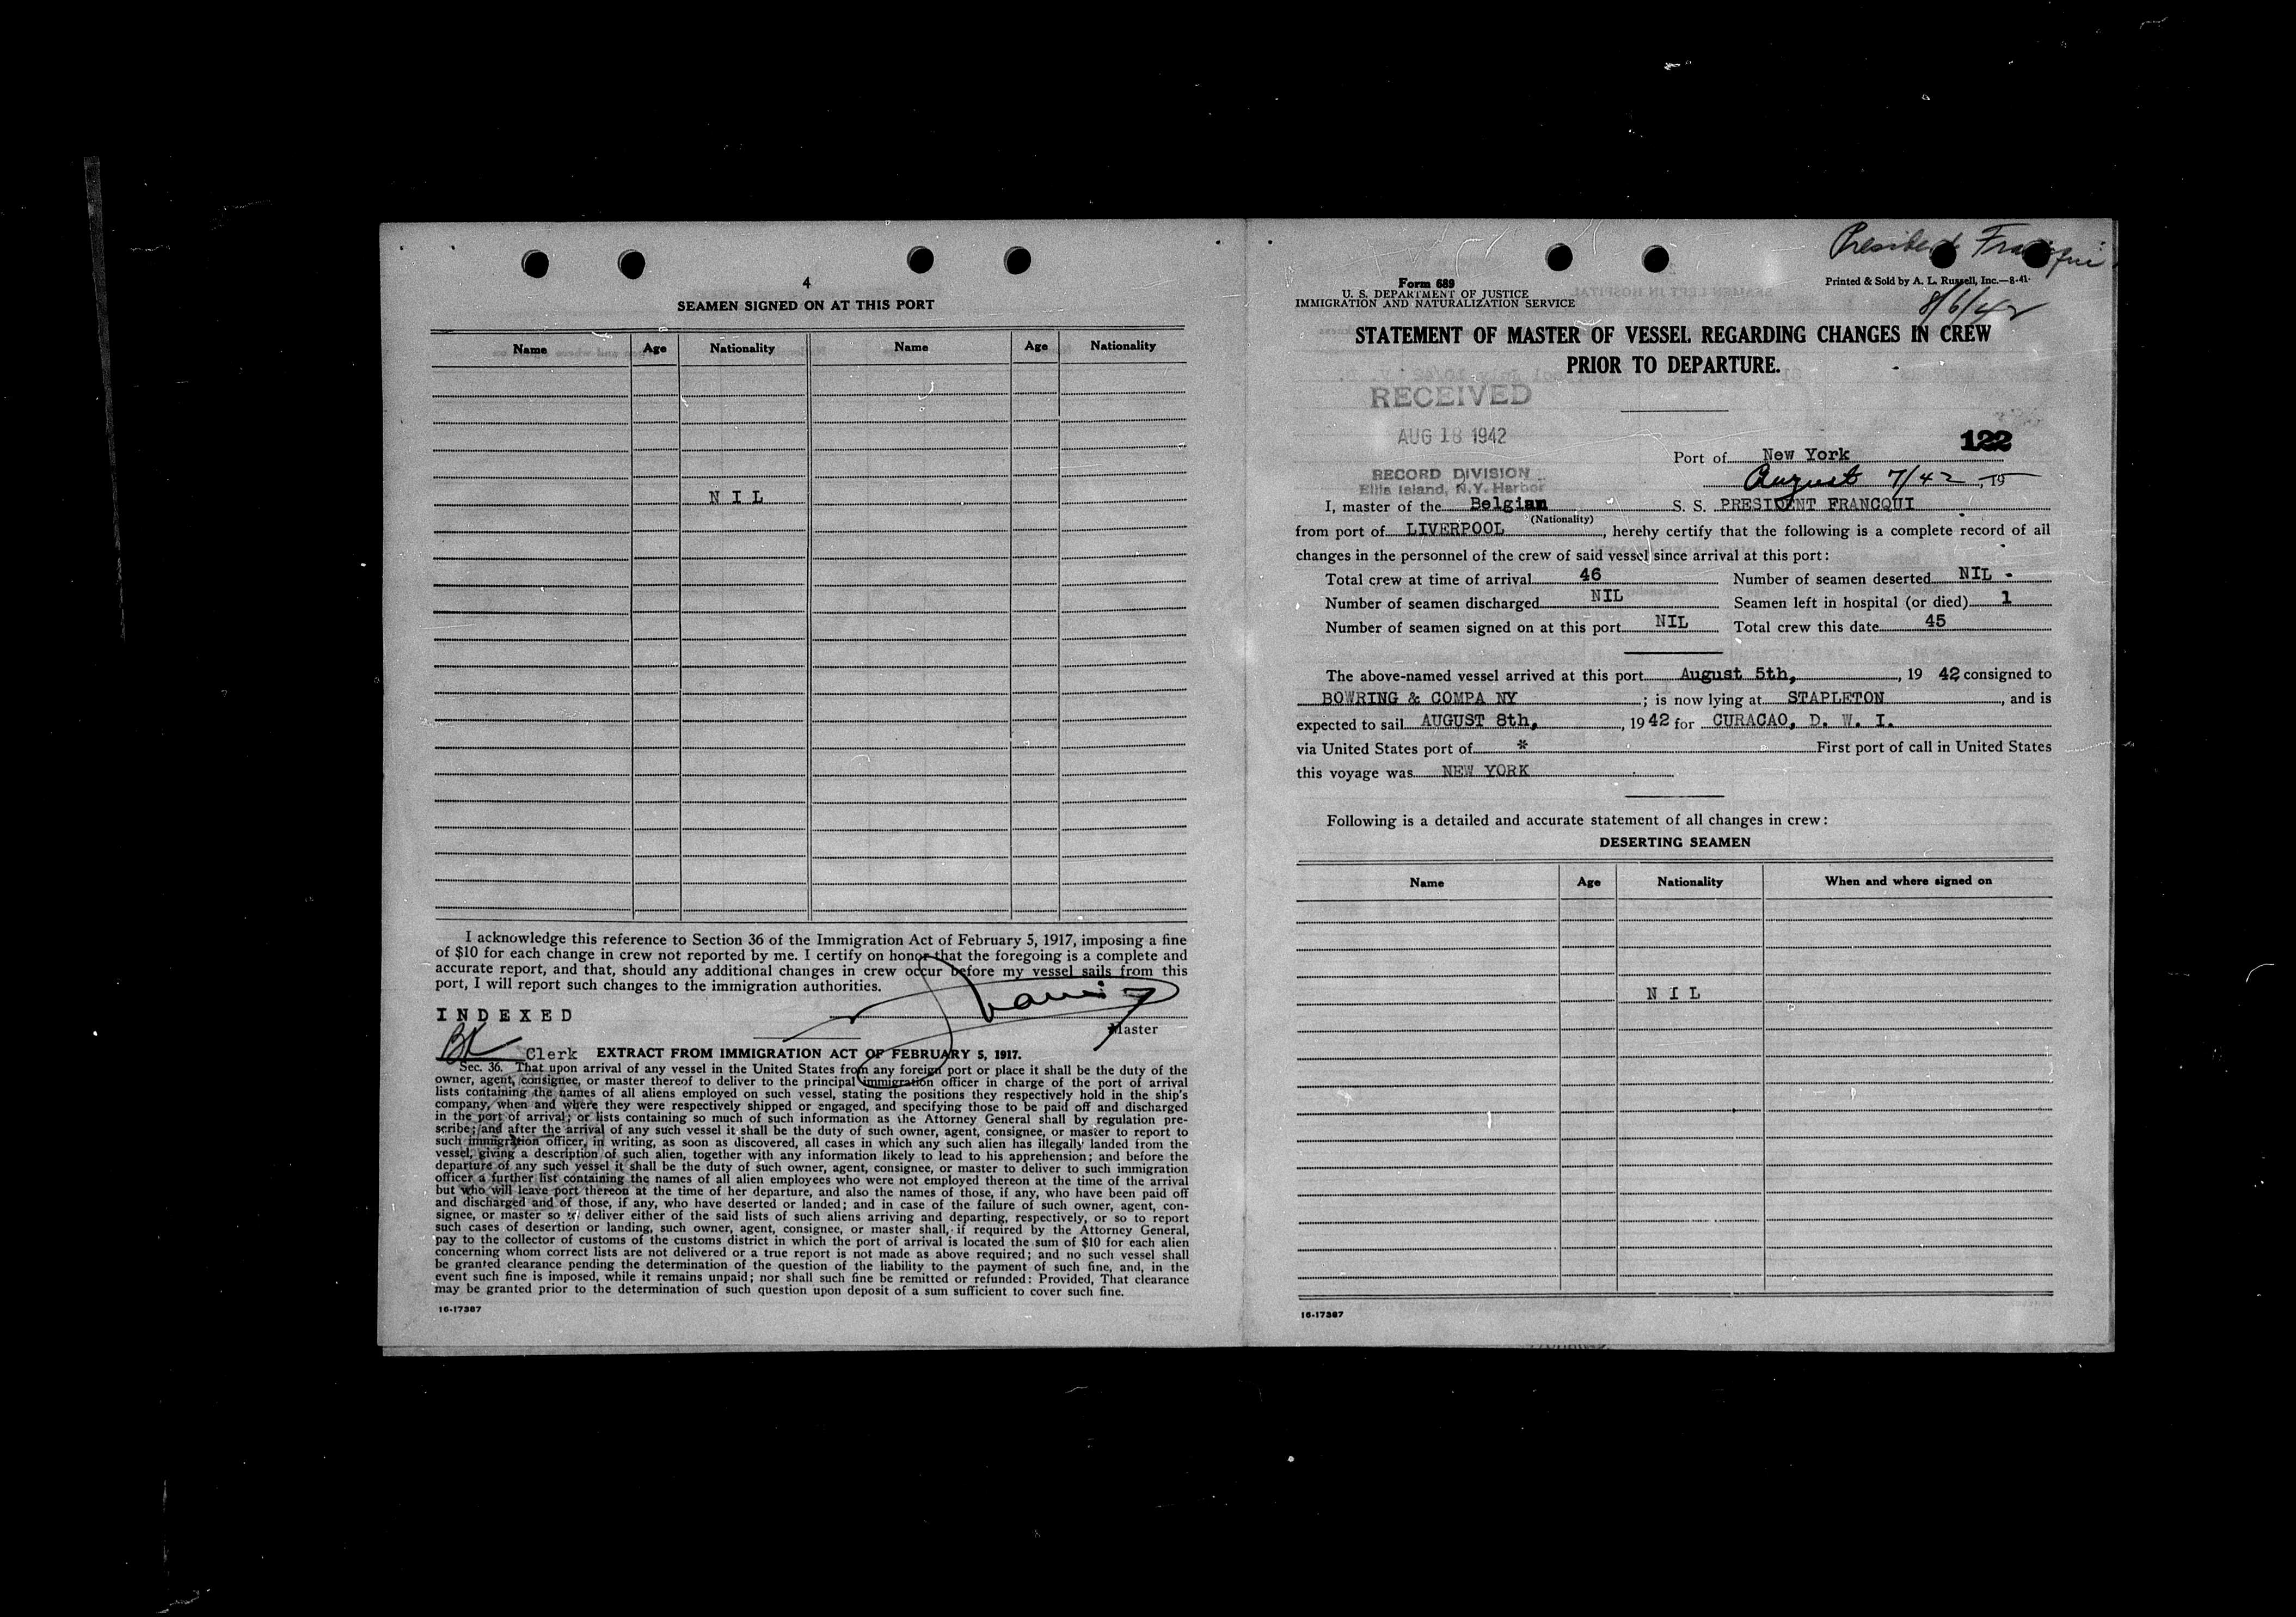 4
SEAMEN SIGNED ON AT THIS PORT
Name Age Nationality Name Age Nationality
N I L
I acknowledge this reference to Section 36 of the Immigration Act of February 5, 1917, imposing a fine
of $10 for each change in crew not reported by me. I certify on honor that the foregoing is a complete and
accurate report, and that, should any additional changes in crew occur before my vessel sails from this
port, I will report such changes to the immigration authorities.
I N D E X E D
Master
Clerk EXTRACT FROM IMMIGRATION ACT OF FEBRUARY 5, 1917.
Sec. 36. That upon arrival of any vessel in the United States from any foreign port or place it shall be the duty of the
owner, agent, consignee, or master thereof to deliver to the principal immigration officer in charge of the port of arrival
lists containing the names of all aliens employed on such vessel, stating the positions they respectively hold in the ship's
company, when and where they were respectively shipped or engaged, and specifying those to be paid off and discharged
in the port of arrival; or lists containing so much of such information as the Attorney General shall by regulation pre-
scribe; and after the arrival of any such vessel it shall be the duty of such owner, agent, consignee, or master to report to
such immigration officer, in writing, as soon as discovered, all cases in which any such alien has illegally landed from the
vessel, giving a description of such alien, together with any information likely to lead to his apprehension; and before the
departure of any such vessel it shall be the duty of such owner, agent, consignee, or master to deliver to such immigration
officer a further list containing the names of all alien employees who were not employed thereon at the time of the arrival
but who will leave port thereon at the time of her departure, and also the names of those, if any, who have been paid off
and discharged and of those, if any, who have deserted or landed; and in case of the failure of such owner, agent, con-
signee, or master so to deliver either of the said lists of such aliens arriving and departing, respectively, or so to report
such cases of desertion or landing, such owner, agent, consignee, or master shall, if required by the Attorney General,
pay to the collector of customs of the customs district in which the port of arrival is located the sum of $10 for each alien
concerning whom correct lists are not delivered or a true report is not made as above required; and no such vessel shall
be granted clearance pending the determination of the question of the liability to the payment of such fine, and, in the
event such fine is imposed, while it remains unpaid; nor shall such fine be remitted or refunded: Provided, That clearance
may be granted prior to the determination of such question upon deposit of a sum sufficient to cover such fine.
16-17387
President Francqui
Form 689
U. S. DEPARTMENT OF JUSTICE
IMMIGRATION AND NATURALIZATION SERVICE
Printed & Sold by A. L. Russell, Inc.—8-41
8/6/42
STATEMENT OF MASTER OF VESSEL REGARDING CHANGES IN CREW
PRIOR TO DEPARTURE.
RECEIVED
AUG 18 1942
RECORD DIVISION
Ellis Island, N.Y. Harbor
122
Port of New York
August 7/42, 19
I, master of the Belgian S. S. PRESIDENT FRANCQUI
(Nationality)
from port of LIVERPOOL, hereby certify that the following is a complete record of all
changes in the personnel of the crew of said vessel since arrival at this port:
Total crew at time of arrival 46 Number of seamen deserted NIL -
Number of seamen discharged NIL Seamen left in hospital (or died) 1
Number of seamen signed on at this port NIL Total crew this date 45
The above-named vessel arrived at this port August 5th, , 19 42 consigned to
BOWRING & COMPA NY ; is now lying at STAPLETON , and is
expected to sail AUGUST 8th, , 19 42 for CURACAO, D. W. I.
via United States port of * First port of call in United States
this voyage was NEW YORK
Following is a detailed and accurate statement of all changes in crew:
DESERTING SEAMEN
Name Age Nationality When and where signed on
N I L
16-17387